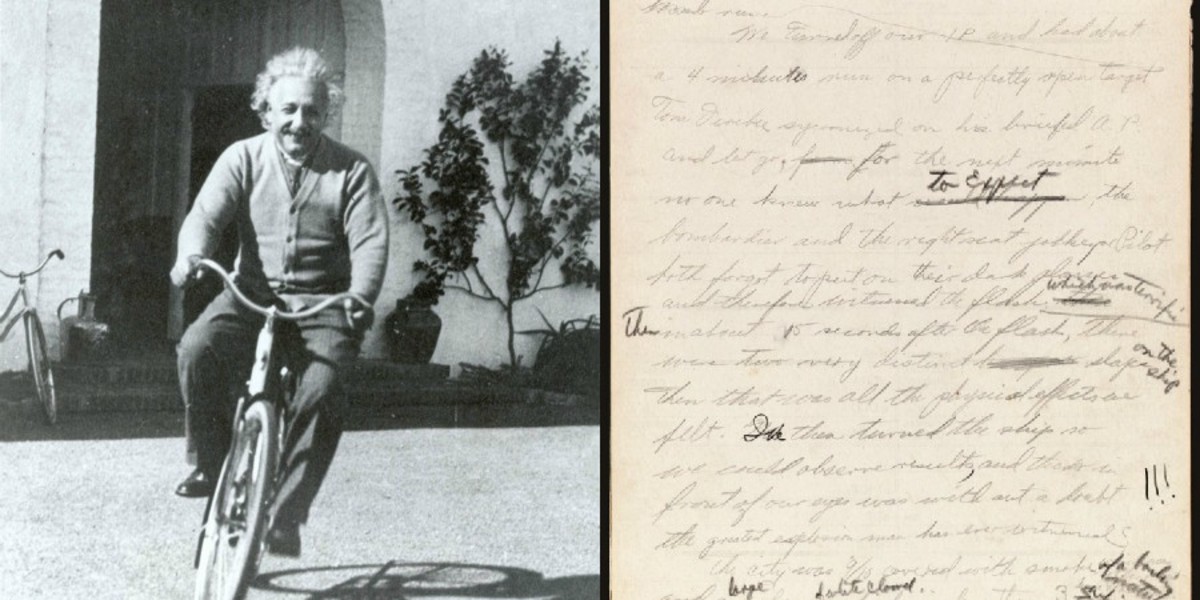 Bomb run.
We turned off over IP and had about
a 4 minutes run on a perfectly open target
Tom Ferebee syncronized on his briefed A.P.
and let go, for the next minute
no one knew what to Expect, the
bombardier and the right seat jockey or Pilot
both forgot to put on their dark glasses
and therefore witnessed the flash which was terrific
Then in about 15 seconds after the flash, there
was two very distinct slaps on the ship
Then that was all the physical effects we
felt. We then turned the ship so
we could observe results, and there in
front of our eyes was without a doubt
the greatest explosion man has ever witnessed
!!!
the city was 9/10 covered with smoke of a
large white cloud